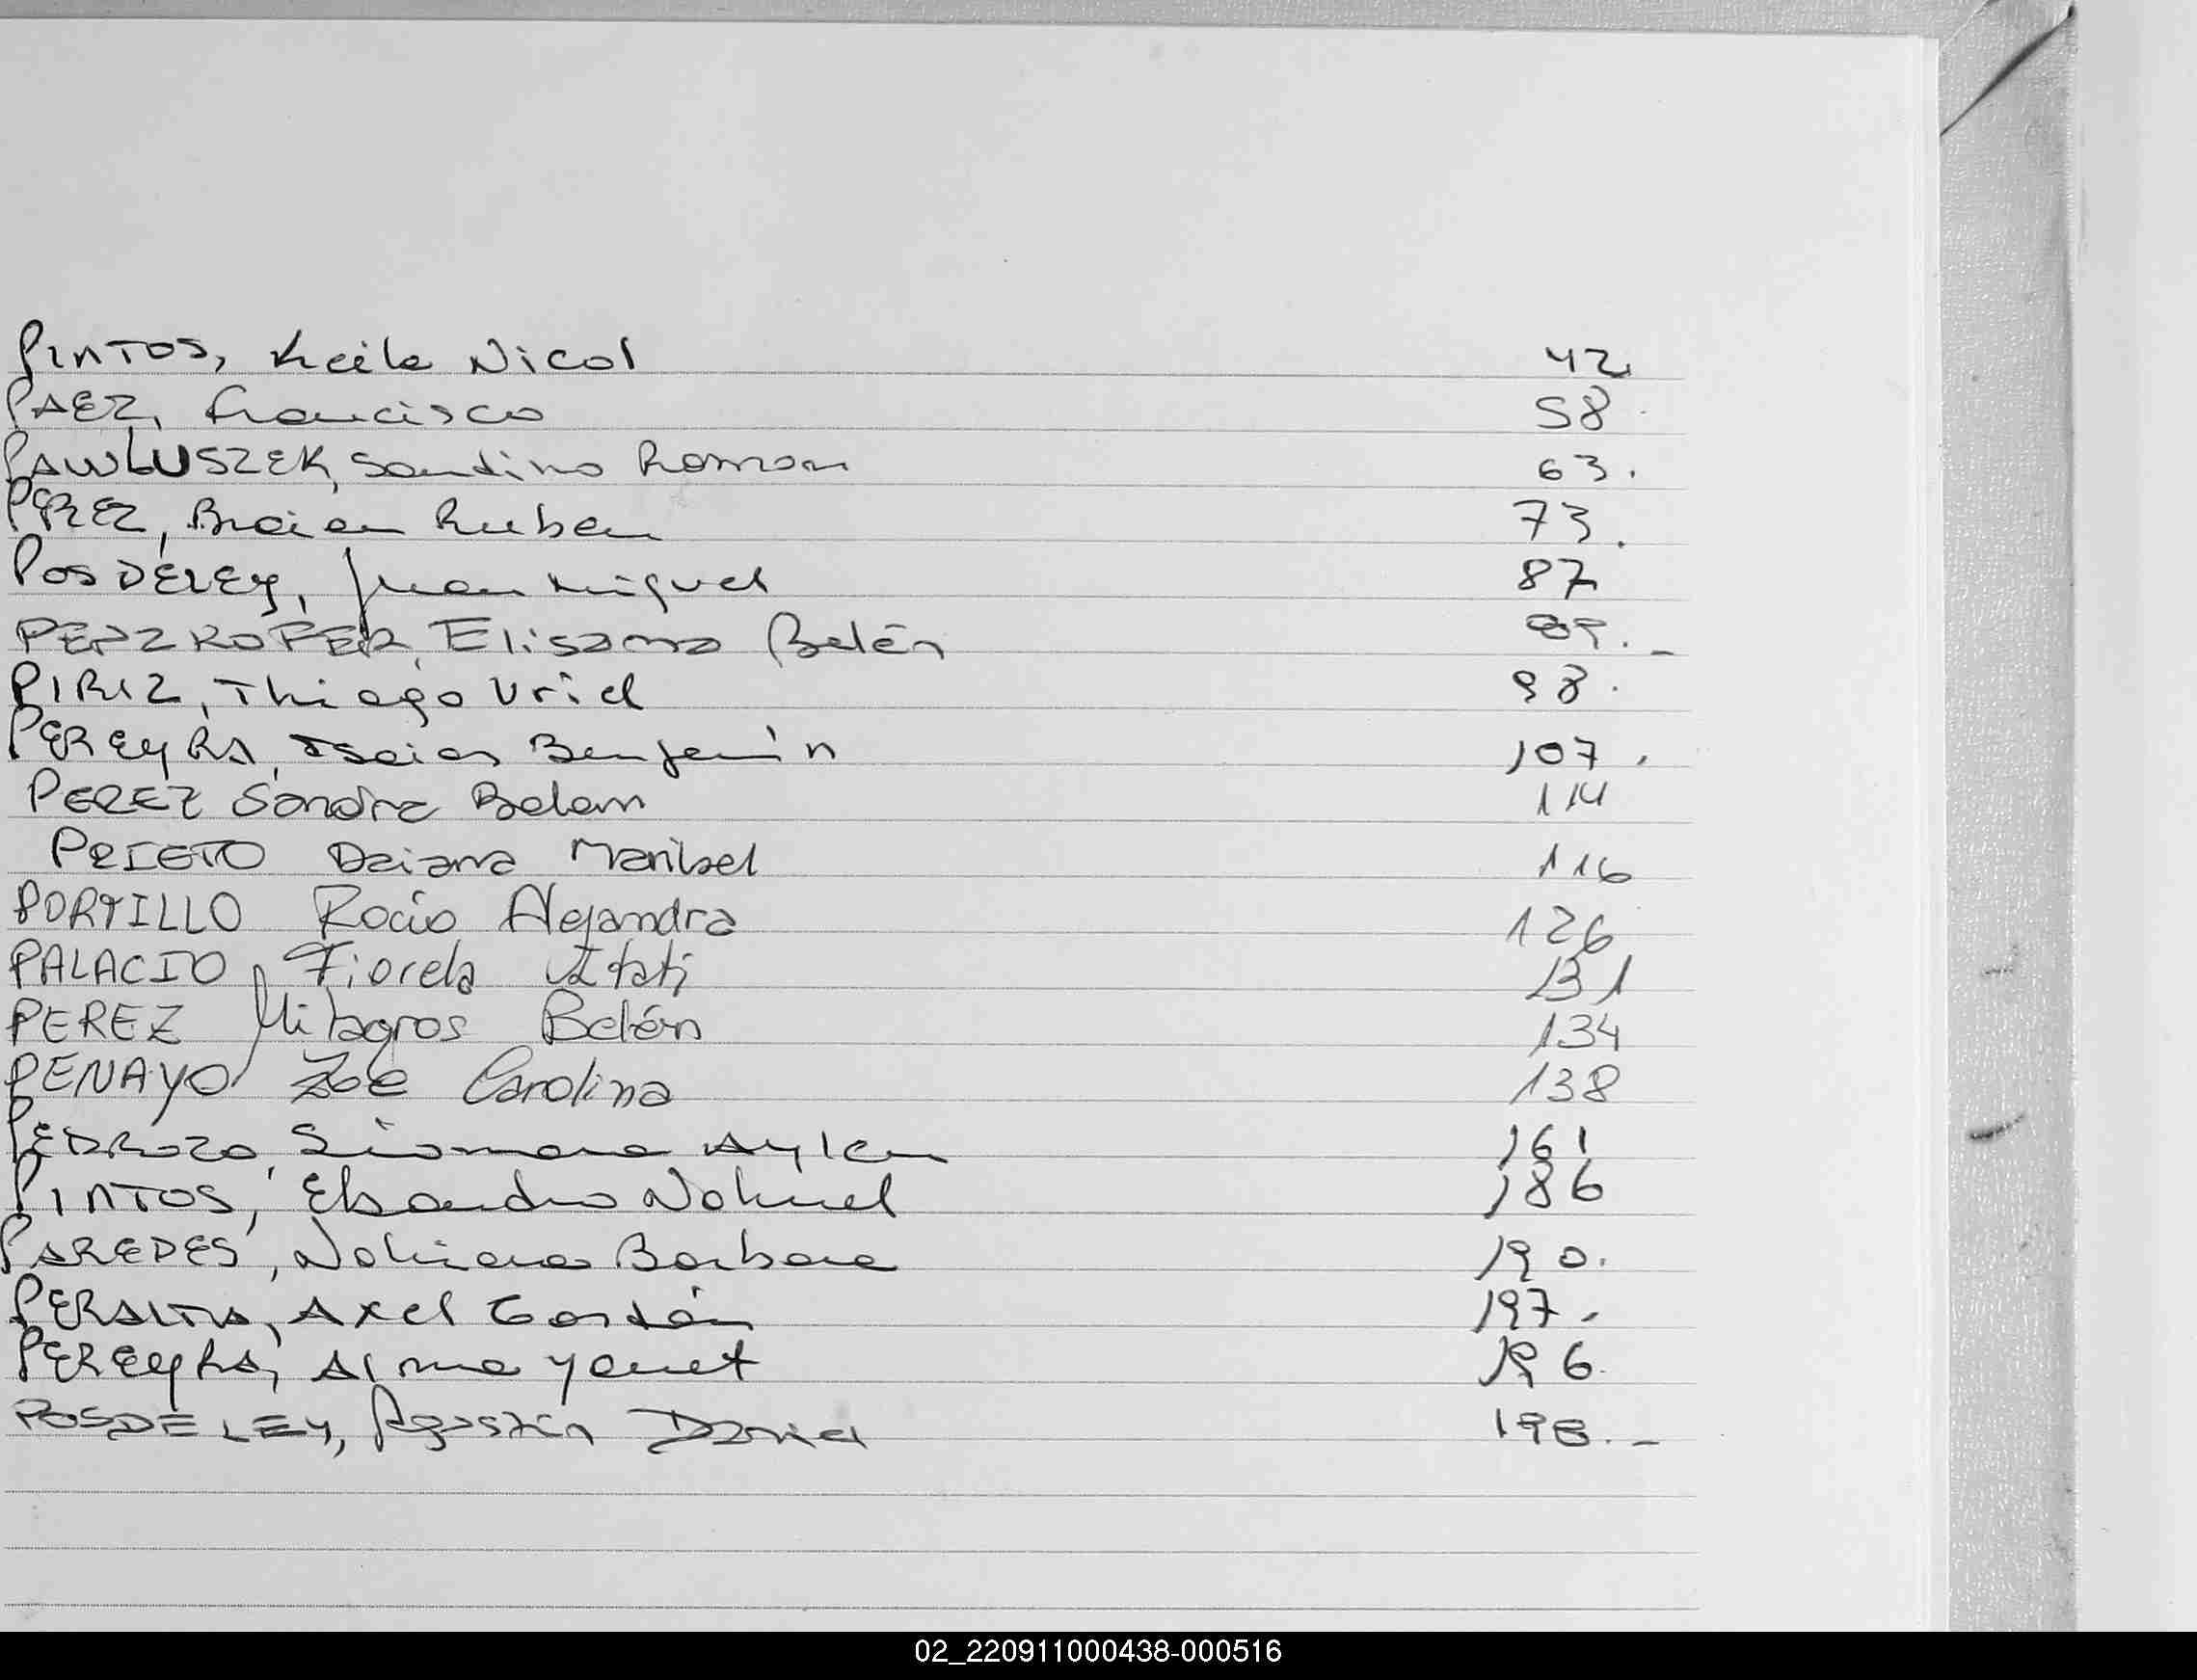 PINTOS, Keila Nicol 42.
PAEZ, Francisco 58.
PAWLUSZEK, Sandino Roman 63.
PEREZ, Braian Ruben 73.
POSDELEY, Juan Miguel 87
Elisama Belén 89.-
PIRIZ, Thiago Uriel 98.
PEREYRA, Isaias Benjamín 107.
PEREZ Sandra Belem 114
PRIETO Daiana Maribel 116
PORTILLO Rocio Alejandra 126
PALACIO Fiorela Itatí 131
PEREZ Milagros Belén 134
PENAYO Zoe Carolina 138
PEDROZO, Siomara Aylen 161
PINTOS, Nahuel 186
PAREDES, Nahiara Barbara 190.
PERALTA, Axel Gastón 197.
PEREYRA, Alma Yanet 196.
POSDELEY, Agustín Daniel 198.-
02_220911000438-000516